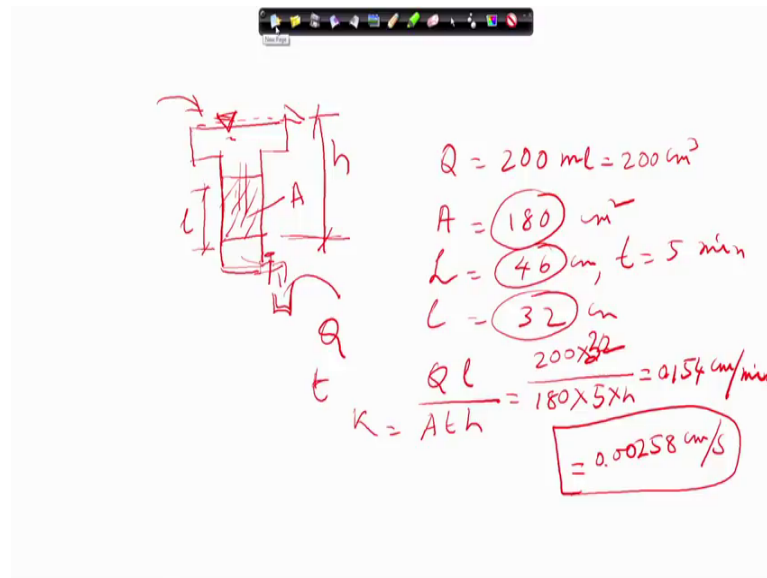 New Page
h
A
l
Q
t
Q = 200 ml = 200 cm³
A = 180 cm²
L = 46 cm, t = 5 min
l = 32 cm
K = Ql / Ath = 200×32 / 180×5×h = 0.154 cm/min
= 0.00258 cm/s